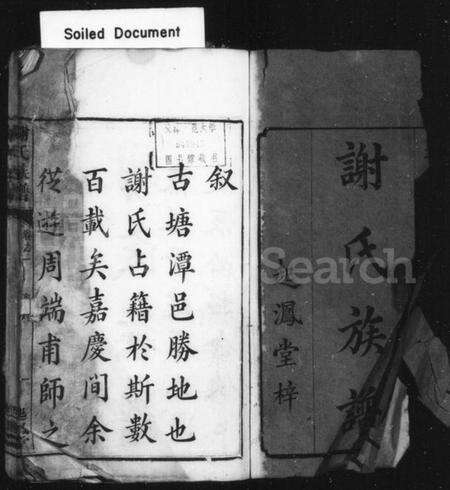 Soiled Document
謝氏族譜
鳳堂梓
叙
古塘潭邑勝地也
謝氏占籍於斯數
百載矣嘉慶间余
從遊周端甫師之
Search